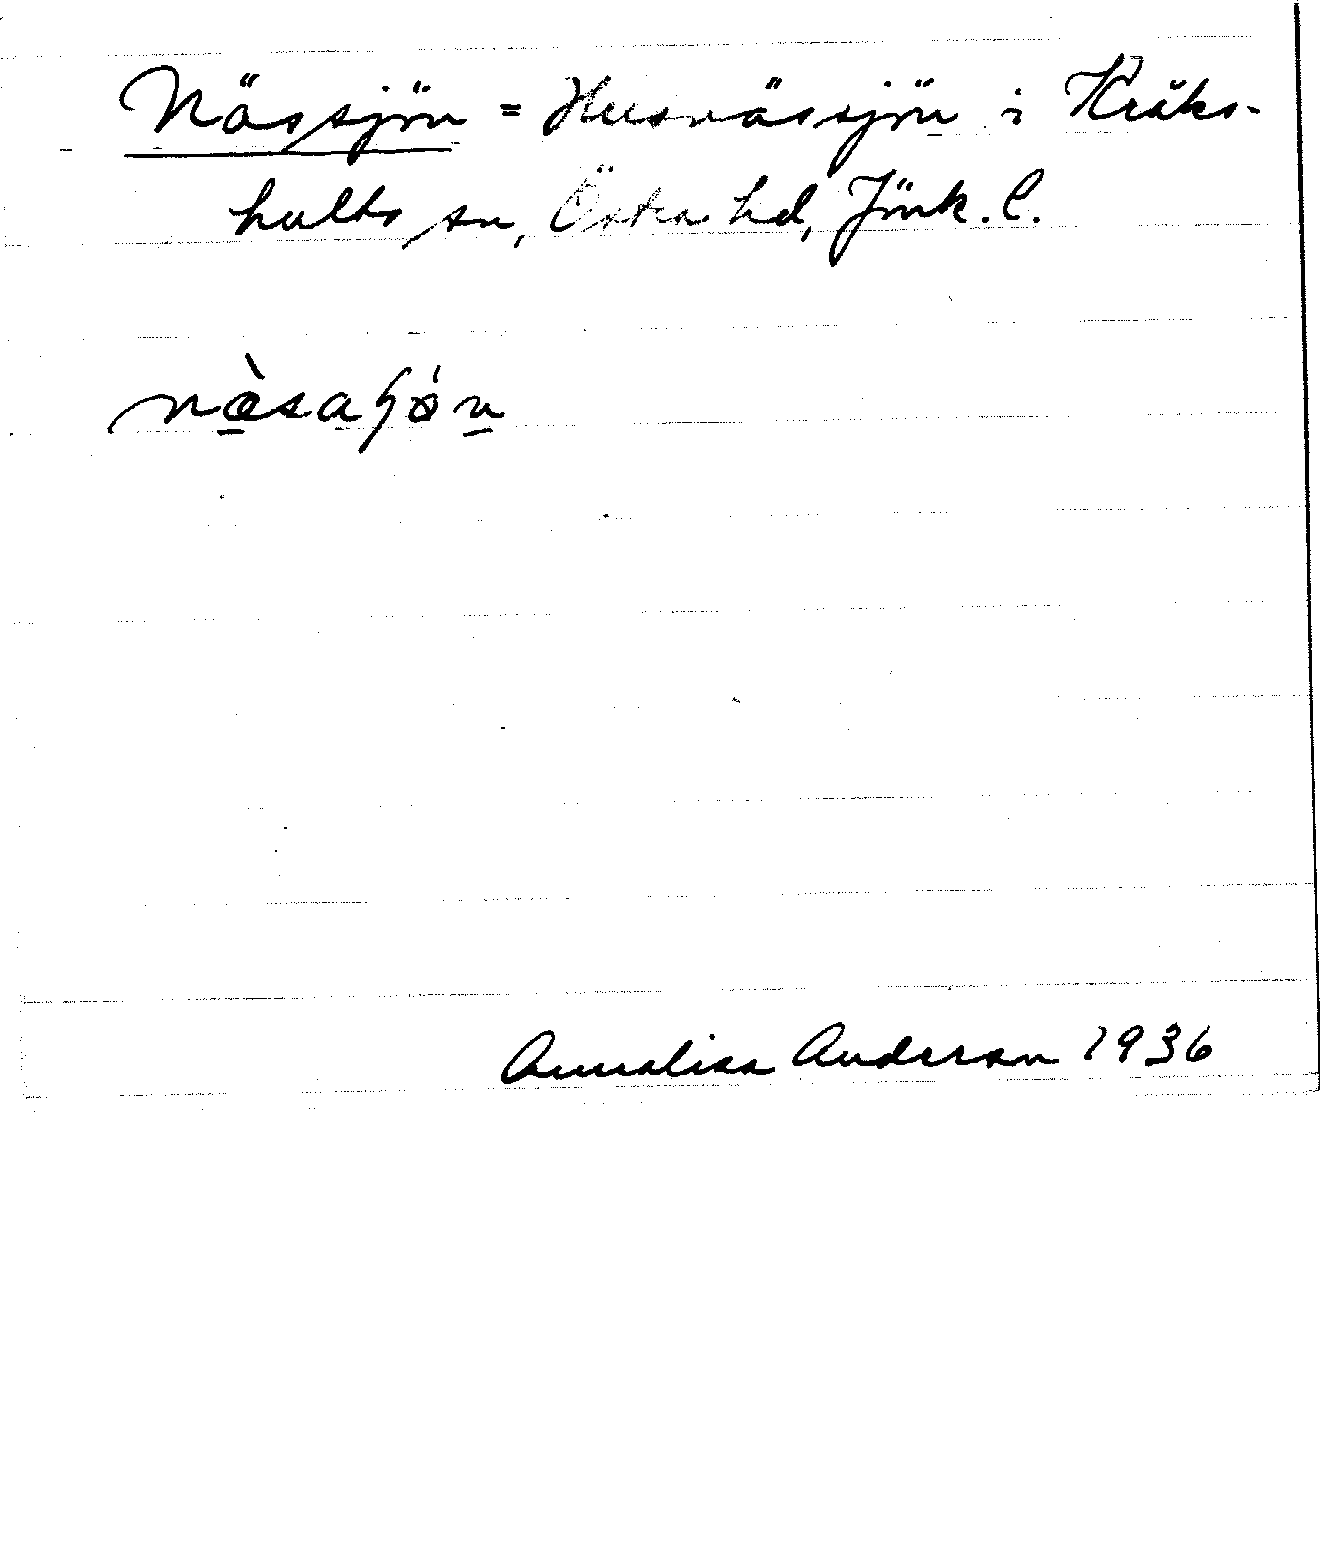 Nässjön = Husnässjön i Kråks-
hults sn, Östra hd, Jönk. l.
næ̀saɧǿn
Annalisa Anderson 1936